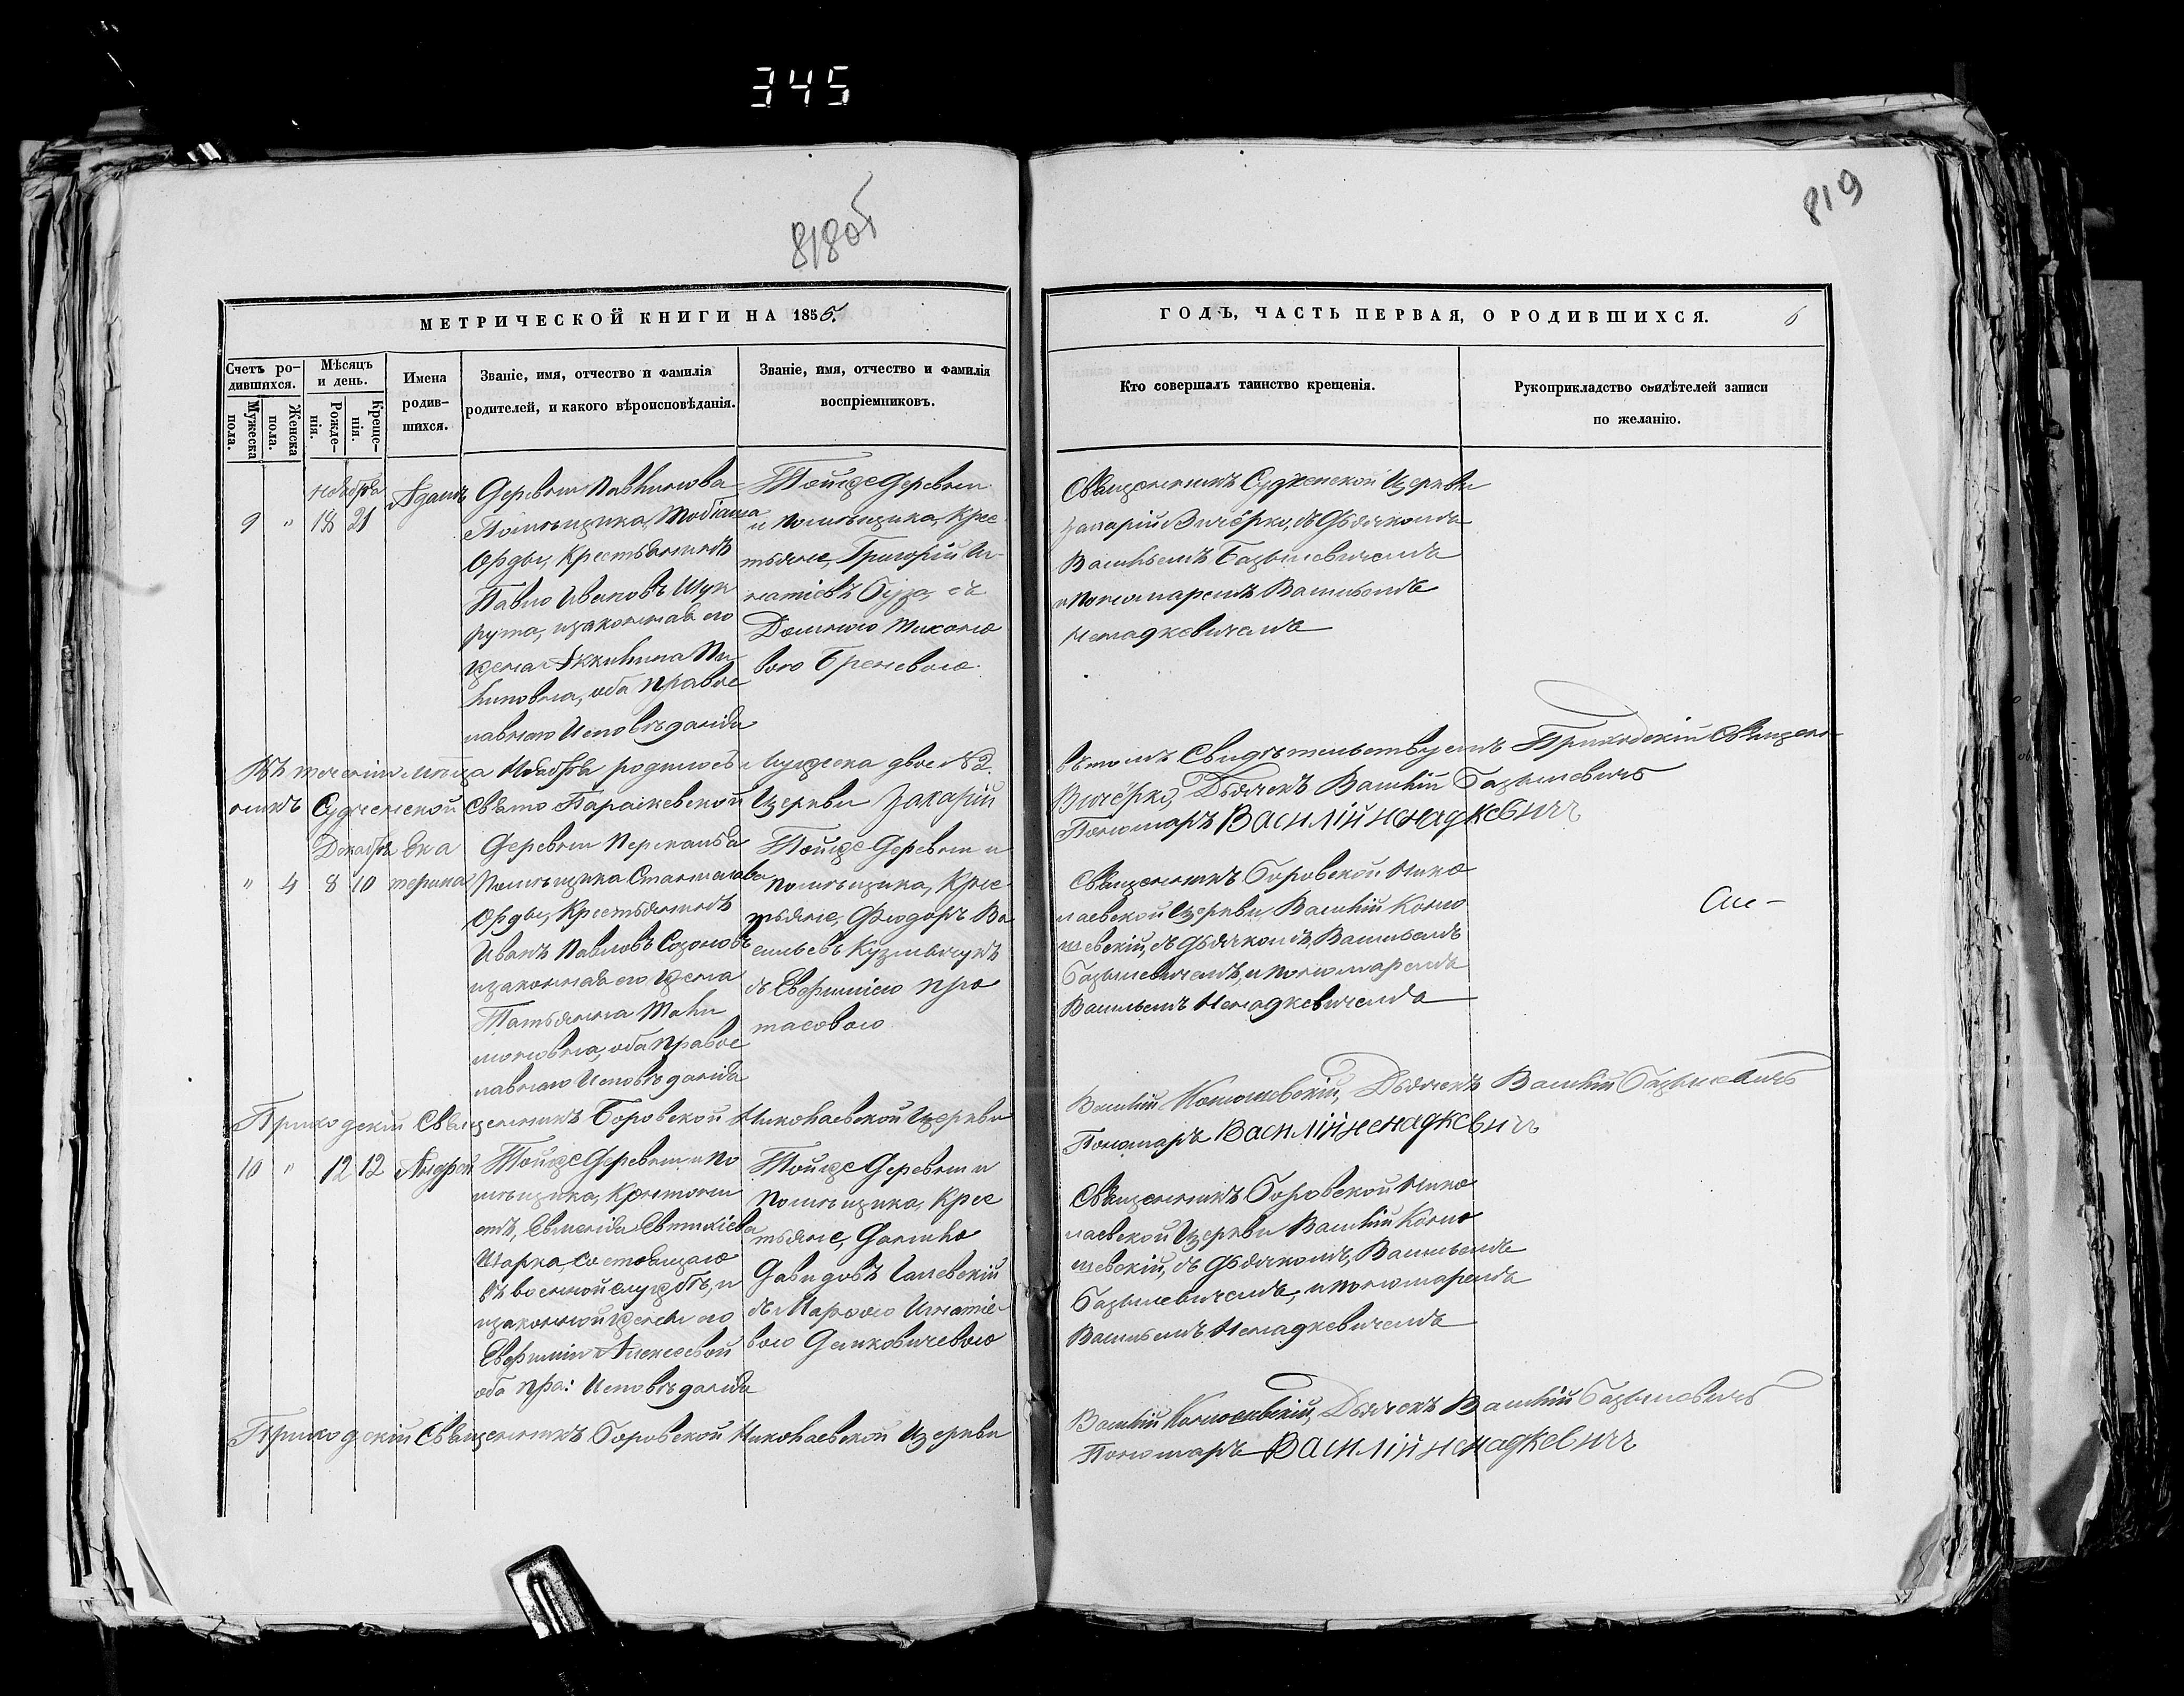 345
818об
819
МЕТРИЧЕСКОЙ КНИГИ НА 1855.
ГОДЪ, ЧАСТЬ ПЕРВАЯ, О РОДИВШИХСЯ.
6
Счетъ родившихся.
Мужеска пола.
Женска пола.
Мѣсяцъ и день.
Рожденія.
Крещенія.
Имена родившихся.
Званіе, имя, отчество и фамилія
родителей, и какого вѣроисповѣданія.
Званіе, имя, отчество и фамилія
воспріемниковъ.
Кто совершалъ таинство крещенія.
Рукоприкладство свидѣтелей записи
по желанію.
Ноября
9 " 18 21
Адамъ
Деревни
Помѣщика
Орды, Крестьянинъ
Павло Ивановъ
законная его
жена
оба Правос
лавнаго Исповѣданія
Тойже Деревни
и Помѣщика, Крес
тьяне, Григорій Иг
натіевъ съ
Священникъ Судченской Церкви
Захарій Вичёрко, съ Дьячкомъ
Василіемъ Базылевичемъ
и Пономаремъ Васильемъ
Ненадкевичемъ
Въ теченіи мѣсяца Ноября родилось Мужеска двое №2.
въ томъ Свидѣтельствуемъ Приходскій Священ-
никъ Судченской Свято Параскевской Церкви Захарій
Вичёрко, Дьячекъ Василій Базылевичъ
Пономарь Василій Ненадкевичъ
Декабря
" 4 8 10
Ека
терина
Деревни
Помѣщика Станислава
Орды, Крестьянинъ
Иванъ Павловъ
законная его жена
Татьянна
оба Правос
лавнаго Исповѣданія
Тойже Деревни и
Помѣщика, Крес
тьяне, Феодоръ Ва
сильевъ
съ Евфиміею Про
тасовою
Священникъ Боровской Нико
лаевской Церкви Василій
съ Дьячкомъ, Васильемъ
Базылевичемъ, и Пономаремъ
Васильемъ Ненадкевичемъ
Приходскій Священникъ Боровской Николаевской Церкви
Василій Дьячекъ Василій Базылевичъ
Пономарь Василій Ненадкевичъ
10 " 12 12
Андрей
Тойже Деревни и По
мѣщика,
состоящаго
въ военной службѣ, и
законной жены его
Евфиміи Алексеевой
оба Пра: Исповѣданія
Тойже Деревни и
Помѣщика, Крес
тьяне,
Давидовъ
съ Марфою Игнатіе
вою
Священникъ Боровской Нико
лаевской Церкви Василій
съ Дьячкомъ, Васильемъ
Базылевичемъ, и Пономаремъ
Васильемъ Ненадкевичемъ
Приходскій Священникъ Боровской Николаевской Церкви
Василій Дьячекъ Василій Базылевичъ
Пономарь Василій Ненадкевичъ